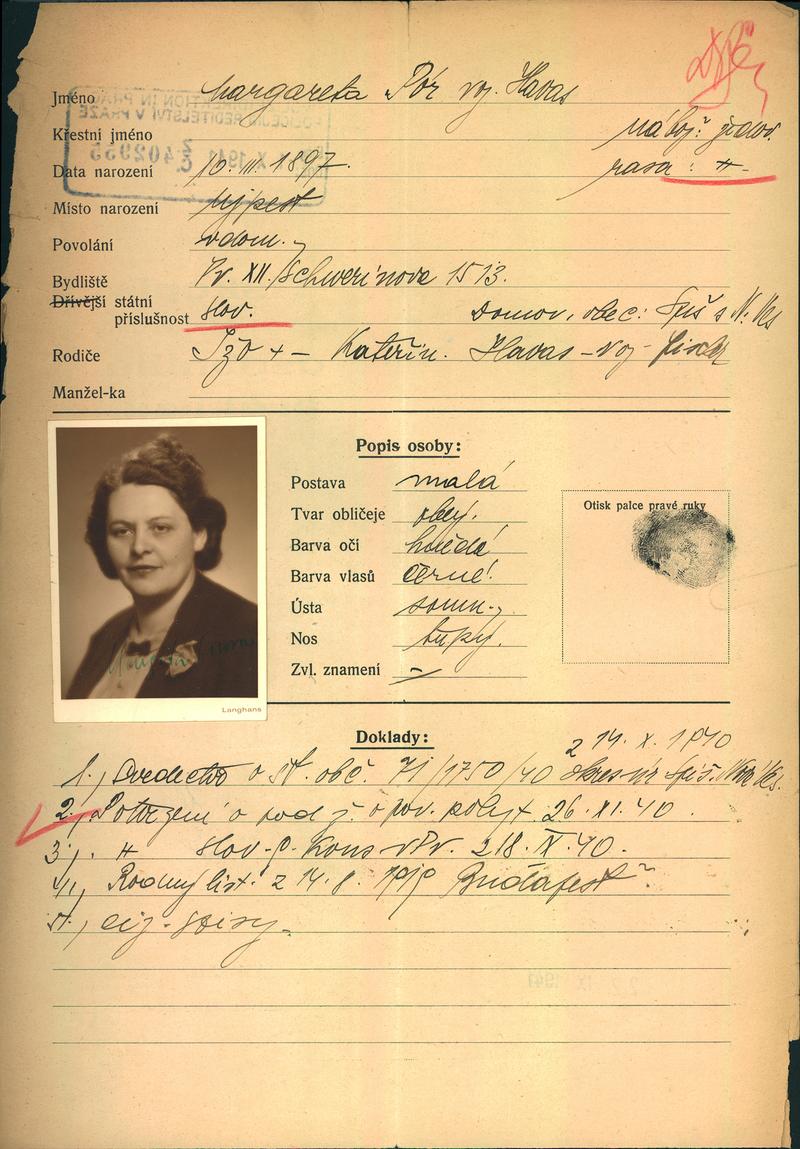 Jméno Margareta Pór roz. Havas
Křestní jméno nábož: židov.
Data narození 10. III. 1897. rasa: +-
Místo narození Ujpest
Povolání vdom.
Bydliště Pr. XII. Schwerinova 1513.
Dřívější státní
příslušnost Slov. Domov. obec: Spiš. N. Ves
Rodiče Izo + - Kateřin. Havas - roz.
Manžel-ka
Popis osoby:
Postava malá
Tvar obličeje obly.
Barva očí hnědá
Barva vlasů černé
Ústa soum.
Nos tupý.
Zvl. znamení –
Otisk palce pravé ruky
Langhans
Doklady:
z 14. X. 1940
1., Svědectvo o št. obč. 71/1750/40 Okres. úr. Spiš. Nová Ves.
2., Potvrzení o pod. ž. o pov. pobyt. 26. XI. 40.
3., " Slov. g. Kons v Pr. z 18. X. 40.
4., Rodný list. z 14. 8. Budapešť
5., ciz. spisy.